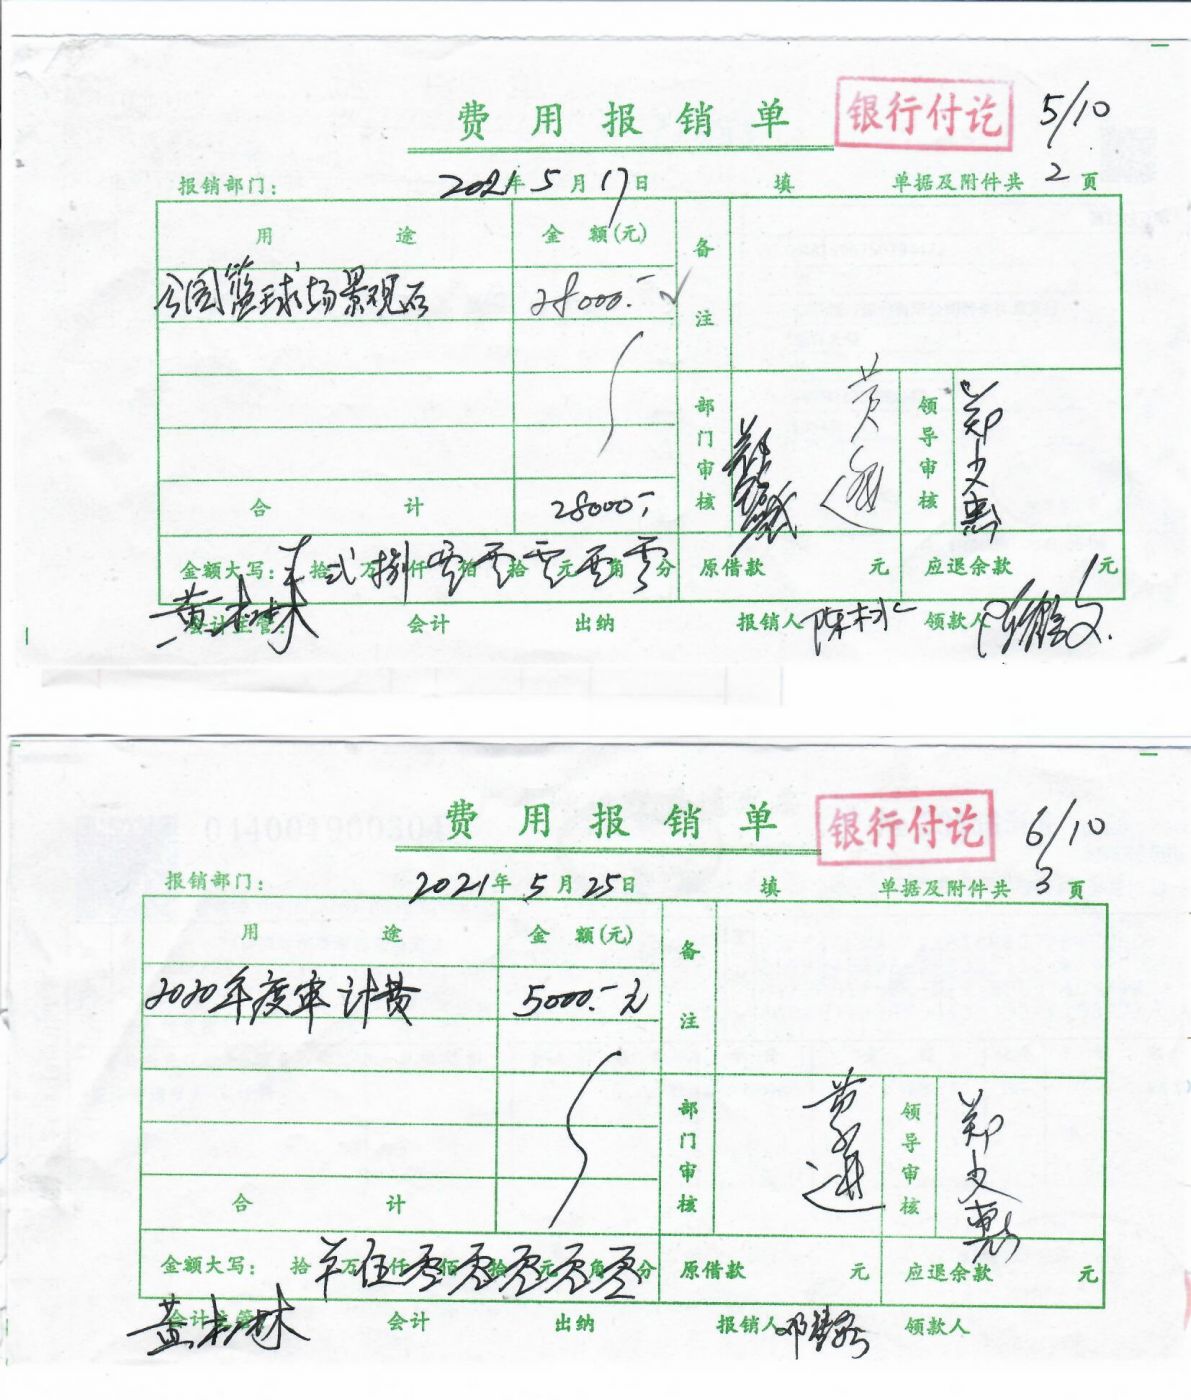 费用报销单 银行付讫 5/10
报销部门: 2021年5月17日 填 单据及附件共 2 页
用途 金额(元) 备注
公园篮球场景观石 28000.-
部门审核 黄 领导审核 郑文惠
合计 28000.-
金额大写: 拾 贰万 捌仟 零佰 零拾 零元 零角 零分 原借款 元 应退余款 元
会计主管: 黄树林 会计 出纳 报销人 陈木水 领款人
费用报销单 银行付讫 6/10
报销部门: 2021年5月25日 填 单据及附件共 3 页
用途 金额(元) 备注
2020年度审计费 5000.-元
部门审核 黄 进 领导审核 郑文惠
合计
金额大写: 拾 万 伍仟 零佰 零拾 零元 零角 零分 原借款 元 应退余款 元
会计主管: 黄树林 会计 出纳 报销人 邓 领款人